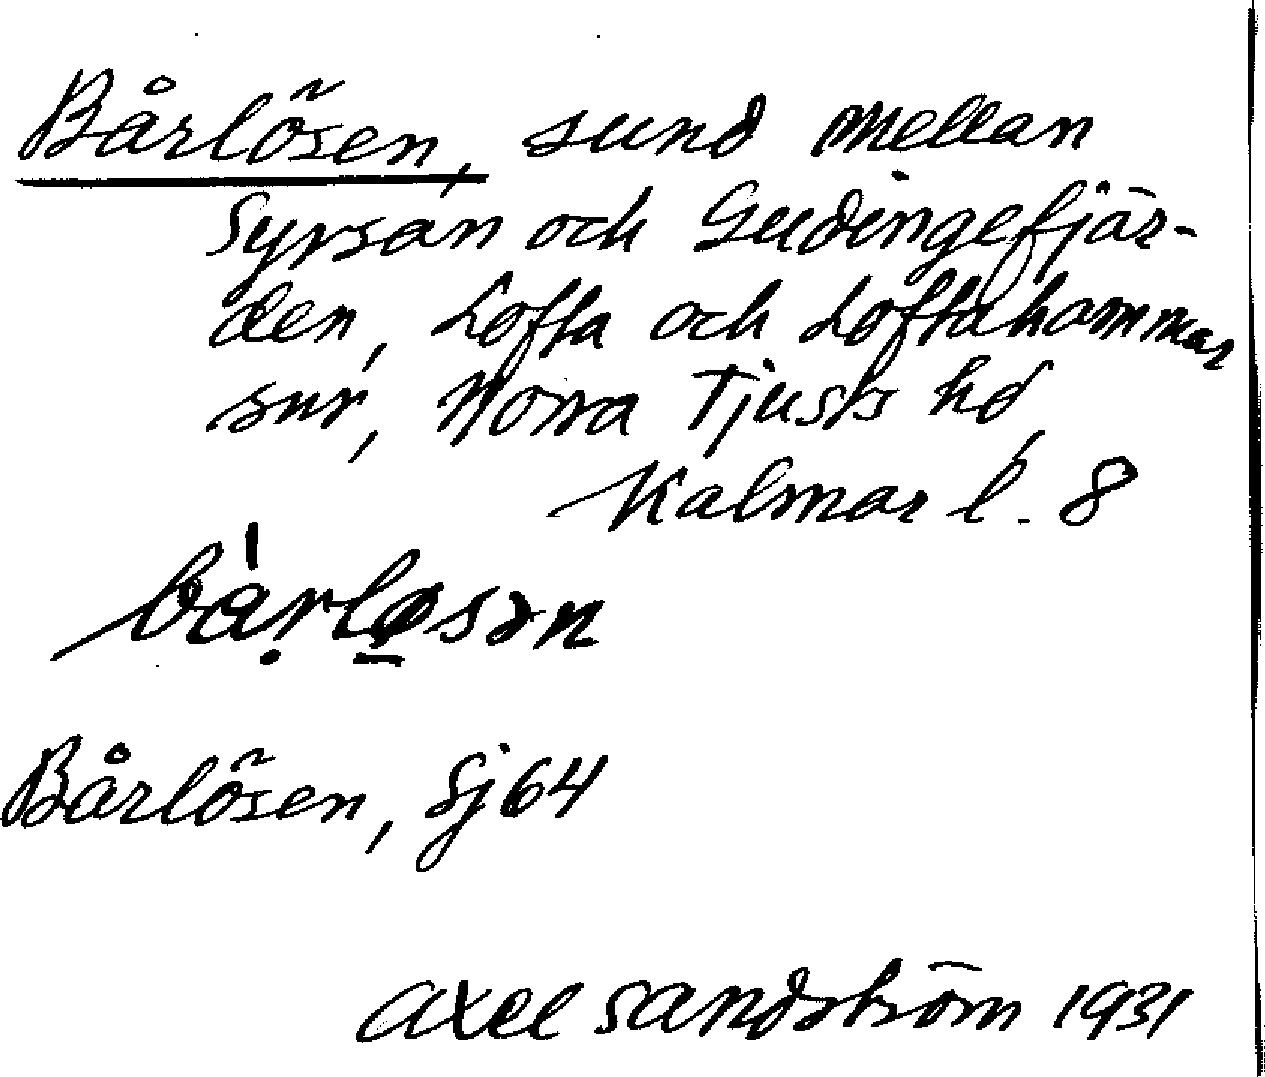 Bårlösen, sund mellan
Syrsan och Gudingefjär-
den, Lofta och Loftahammar
snr, Norra Tjusts hd,
Kalmar l. 8
bàṛlø̱sən
Bårlösen, Sj 64
Axel Sandström 1931